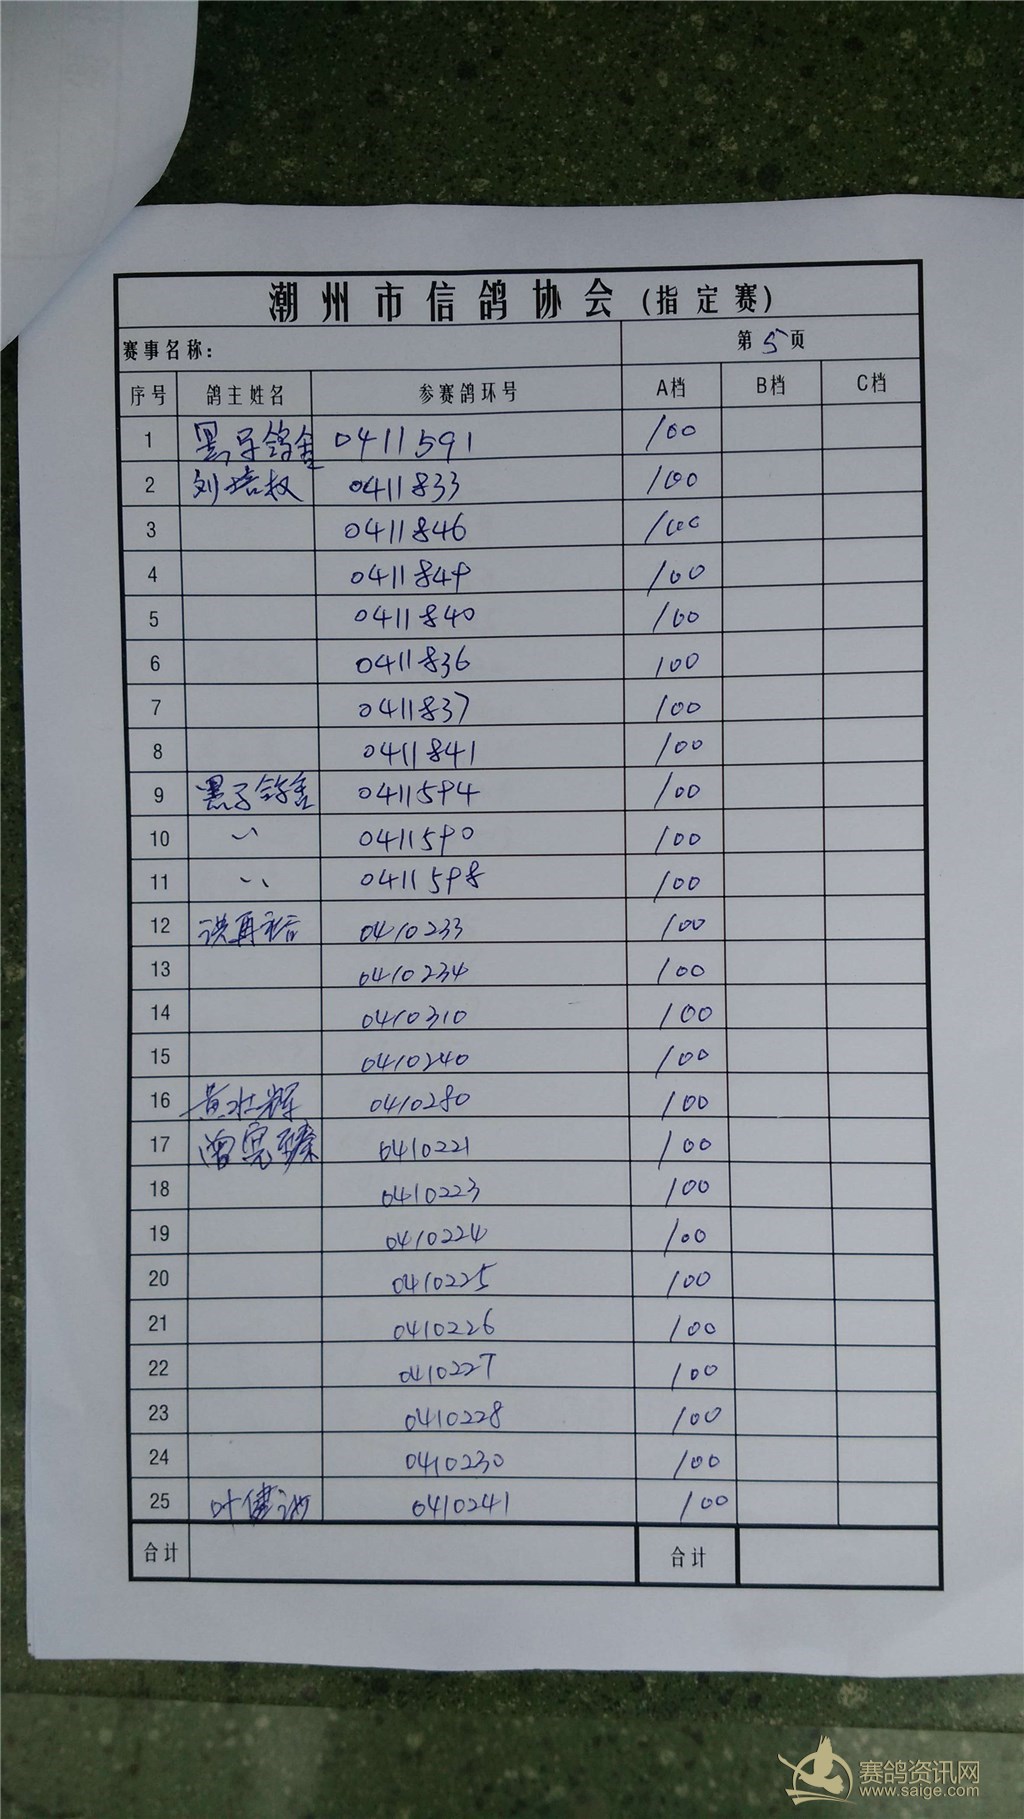 潮州市信鸽协会(指定赛)
赛事名称: 第5页
序号 鸽主姓名 参赛鸽环号 A档 B档 C档
1 黑子鸽舍 0411591 100
2 刘培权 0411833 100
3 0411846 100
4 0411849 100
5 0411840 100
6 0411836 100
7 0411837 100
8 0411841 100
9 黑子鸽舍 0411594 100
10 〃 0411590 100
11 〃 0411598 100
12 洪再裕 0410233 100
13 0410234 100
14 0410310 100
15 0410240 100
16 黄壮辉 0410280 100
17 曾宪臻 0410221 100
18 0410223 100
19 0410224 100
20 0410225 100
21 0410226 100
22 0410227 100
23 0410228 100
24 0410230 100
25 叶健 0410241 100
合计 合计
赛鸽资讯网
www.saige.com